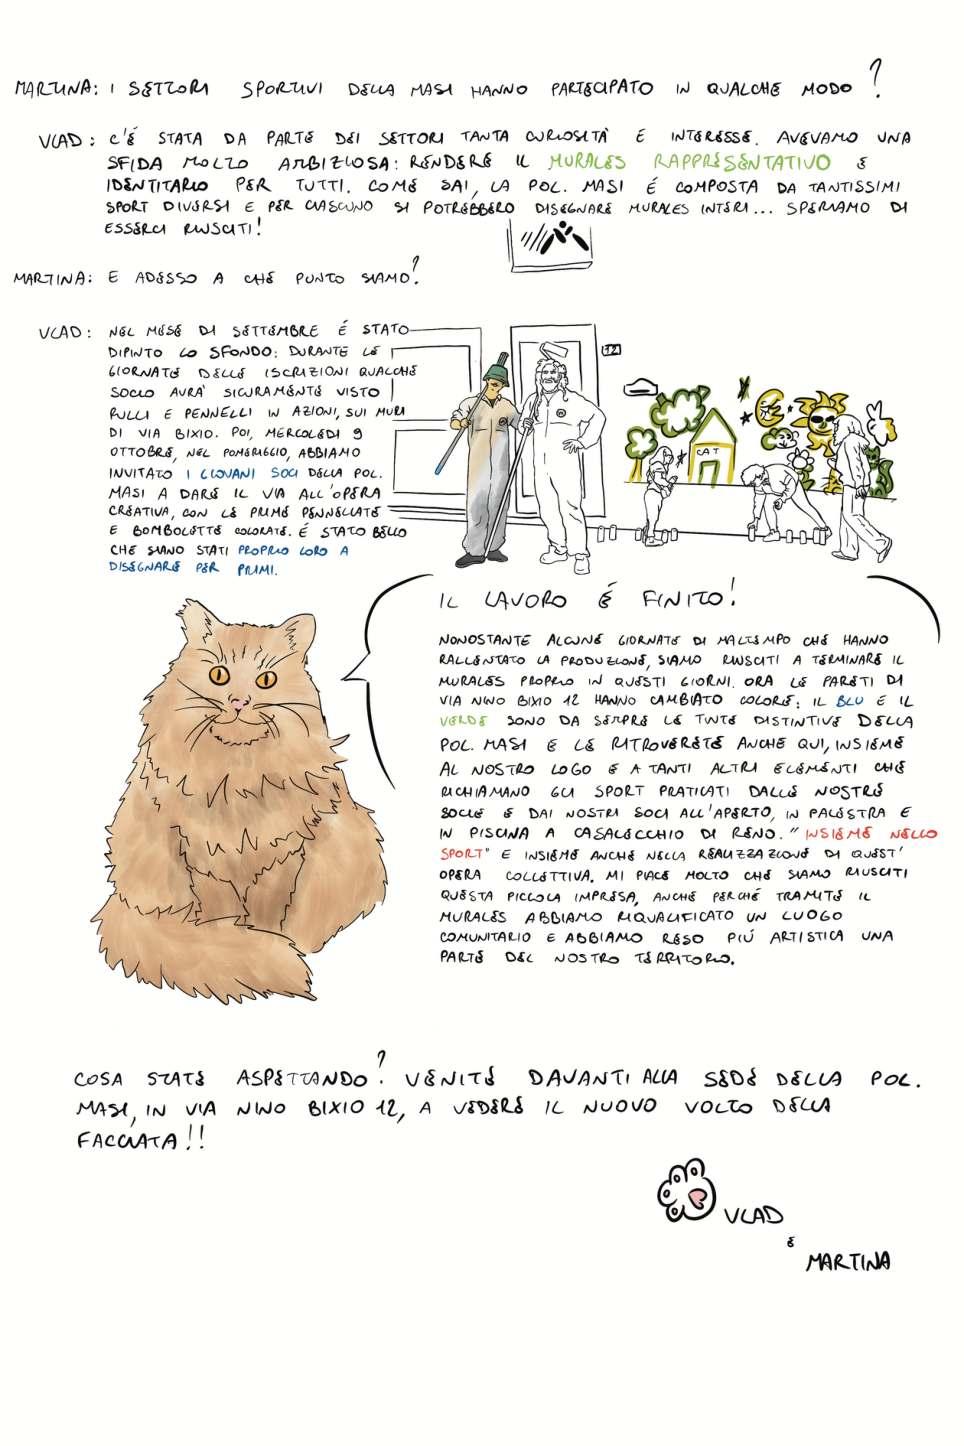 MARTINA: I SETTORI SPORTIVI DELLA MASI HANNO PARTECIPATO IN QUALCHE MODO?
VLAD: C'É STATA DA PARTE DEI SETTORI TANTA CURIOSITÀ E INTERESSE. AVEVAMO UNA
SFIDA MOLTO AMBIZIOSA: RENDERE IL MURALES RAPPRESENTATIVO E
IDENTITARIO PER TUTTI. COME SAI, LA POL. MASI É COMPOSTA DA TANTISSIMI
SPORT DIVERSI E PER CIASCUNO SI POTREBBERO DISEGNARE MURALES INTERI... SPERIAMO DI
ESSERCI RIUSCITI!
MARTINA: E ADESSO A CHE PUNTO SIAMO?
VLAD: NEL MESE DI SETTEMBRE É STATO
DIPINTO LO SFONDO: DURANTE LE
GIORNATE DELLE ISCRIZIONI QUALCHE
SOCIO AVRA' SICURAMENTE VISTO
RULLI E PENNELLI IN AZIONI, SUI MURI
DI VIA BIXIO. POI, MERCOLEDÌ 9
OTTOBRE, NEL POMERIGGIO, ABBIAMO
INVITATO I GIOVANI SOCI DELLA POL.
MASI A DARE IL VIA ALL'OPERA
CREATIVA, CON LE PRIME PENNELLATE
E BOMBOLETTE COLORATE. É STATO BELLO
CHE SIANO STATI PROPRIO LORO A
DISEGNARE PER PRIMI.
12
CAT
IL LAVORO É FINITO!
NONOSTANTE ALCUNE GIORNATE DI MALTEMPO CHE HANNO
RALLENTATO LA PRODUZIONE, SIAMO RIUSCITI A TERMINARE IL
MURALES PROPRIO IN QUESTI GIORNI. ORA LE PARETI DI
VIA NINO BIXIO 12 HANNO CAMBIATO COLORE: IL BLU E IL
VERDE SONO DA SEMPRE LE TINTE DISTINTIVE DELLA
POL. MASI E LE RITROVERETE ANCHE QUI, INSIEME
AL NOSTRO LOGO E A TANTI ALTRI ELEMENTI CHE
RICHIAMANO GLI SPORT PRATICATI DALLE NOSTRE
SOCIE E DAI NOSTRI SOCI ALL'APERTO, IN PALESTRA E
IN PISCINA A CASALECCHIO DI RENO. "INSIEME NELLO
SPORT" E INSIEME ANCHE NELLA REALIZZAZIONE DI QUEST'
OPERA COLLETTIVA. MI PIACE MOLTO CHE SIAMO RIUSCITI
QUESTA PICCOLA IMPRESA, ANCHE PERCHÉ TRAMITE IL
MURALES ABBIAMO RIQUALIFICATO UN LUOGO
COMUNITARIO E ABBIAMO RESO PIÚ ARTISTICA UNA
PARTE DEL NOSTRO TERRITORIO.
COSA STATE ASPETTANDO? VENITE DAVANTI ALLA SEDE DELLA POL.
MASI, IN VIA NINO BIXIO 12, A VEDERE IL NUOVO VOLTO DELLA
FACCIATA!!
VLAD
E
MARTINA